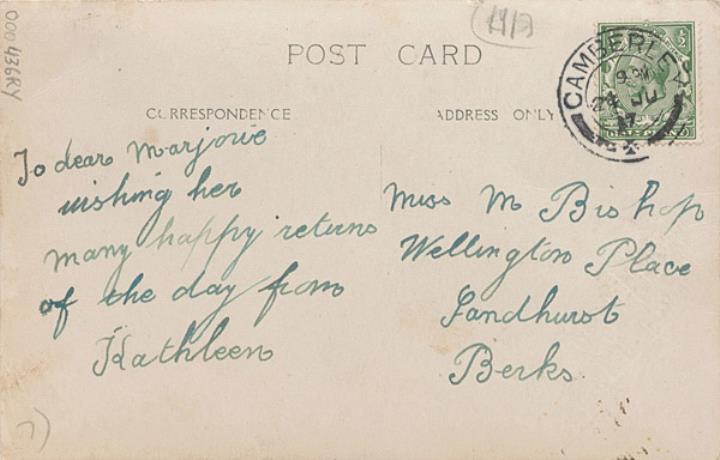 000436RY
1917
POST CARD
CORRESPONDENCE
ADDRESS ONLY
CAMBERLEY
24 JU
17
To dear Marjorie
wishing her
many happy returns
of the day from
Kathleen
Miss M Bishop
Wellington Place
Sandhurst
Berks.